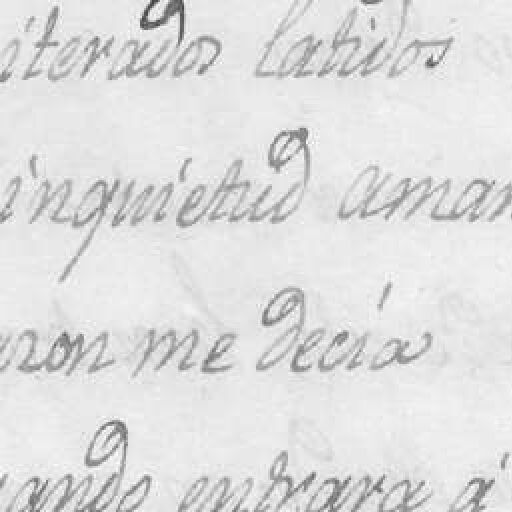 iterados latidos
inquietud aman
azon me decía
ando entrara á